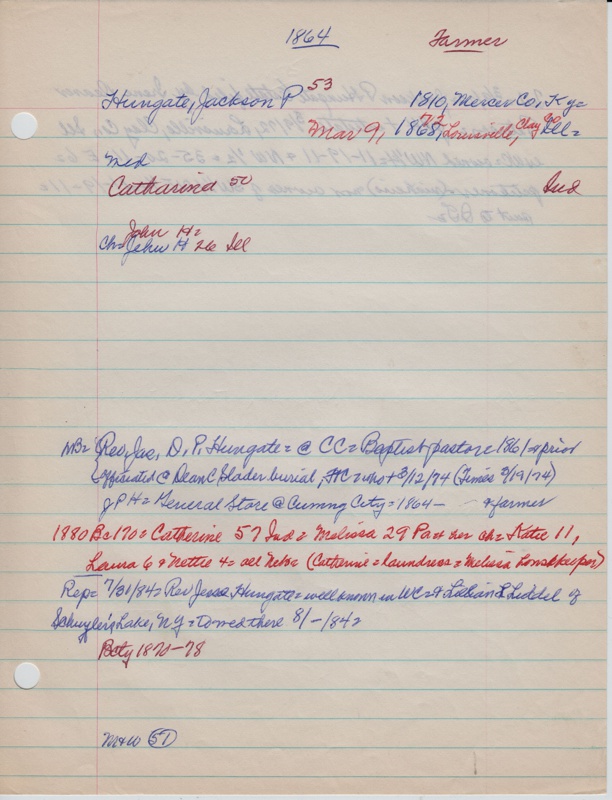 1864 Farmer
Hungate, Jackson P 53 1810, Mercer Co, Ky=
Mar 9, 1868, 72 Louisville, Clay Co Ill=
med
Catharind 50 Ind
John H=
ch= John H 26 Ill
NB= Rev, Jas, D, P, Hungate = @ CC = Baptist pastor 1861 + prior
officiated @ Dean C Slader burial, HC = who + 3/12/74 (Times 3/19/74)
J P H = General Store @ Cuming City = 1864 - + farmer
1880 Bc 170 = Catherine 57 Ind = Melissa 29 Pa + her ch = Katie 11,
Laura 6 + Nettie 4 = all Neb = (Catherine = laundress = Melissa housekeeper)
Rep = 7/31/84 = Rev Jesse Hungate = well known in WC = + Lillian E Liddel of
Schuyler's Lake, NY = to wed there 8/-/84 =
Bcty 1870-78
M+W 57